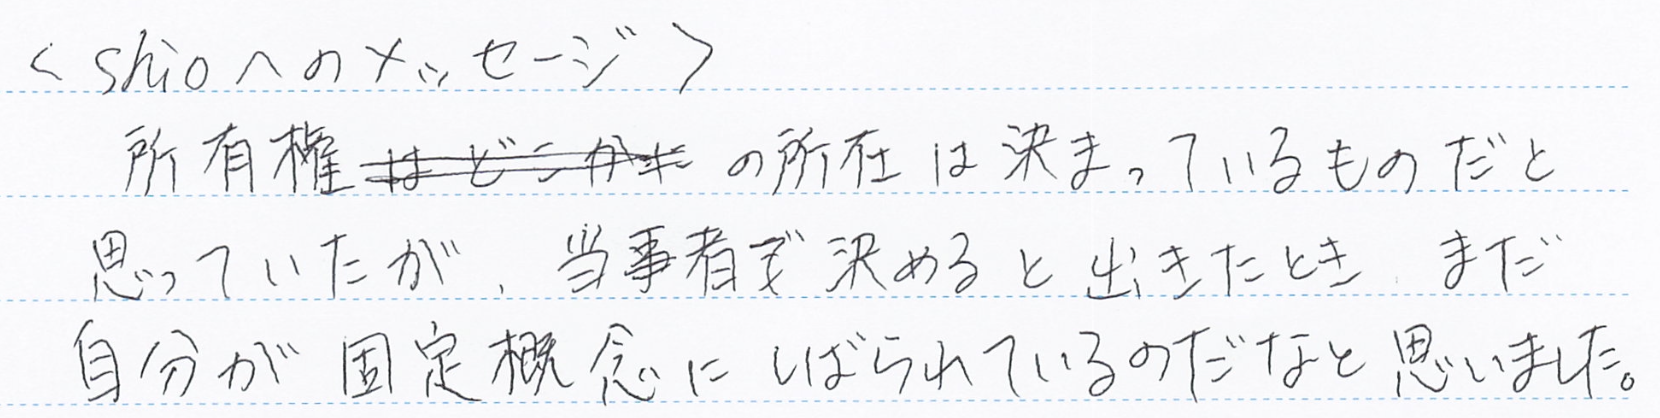 <shioへのメッセージ>
所有権はどこかにの所在は決まっているものだと
思っていたが、当事者で決めると出きたとき、まだ
自分が固定概念にしばられているのだなと思いました。